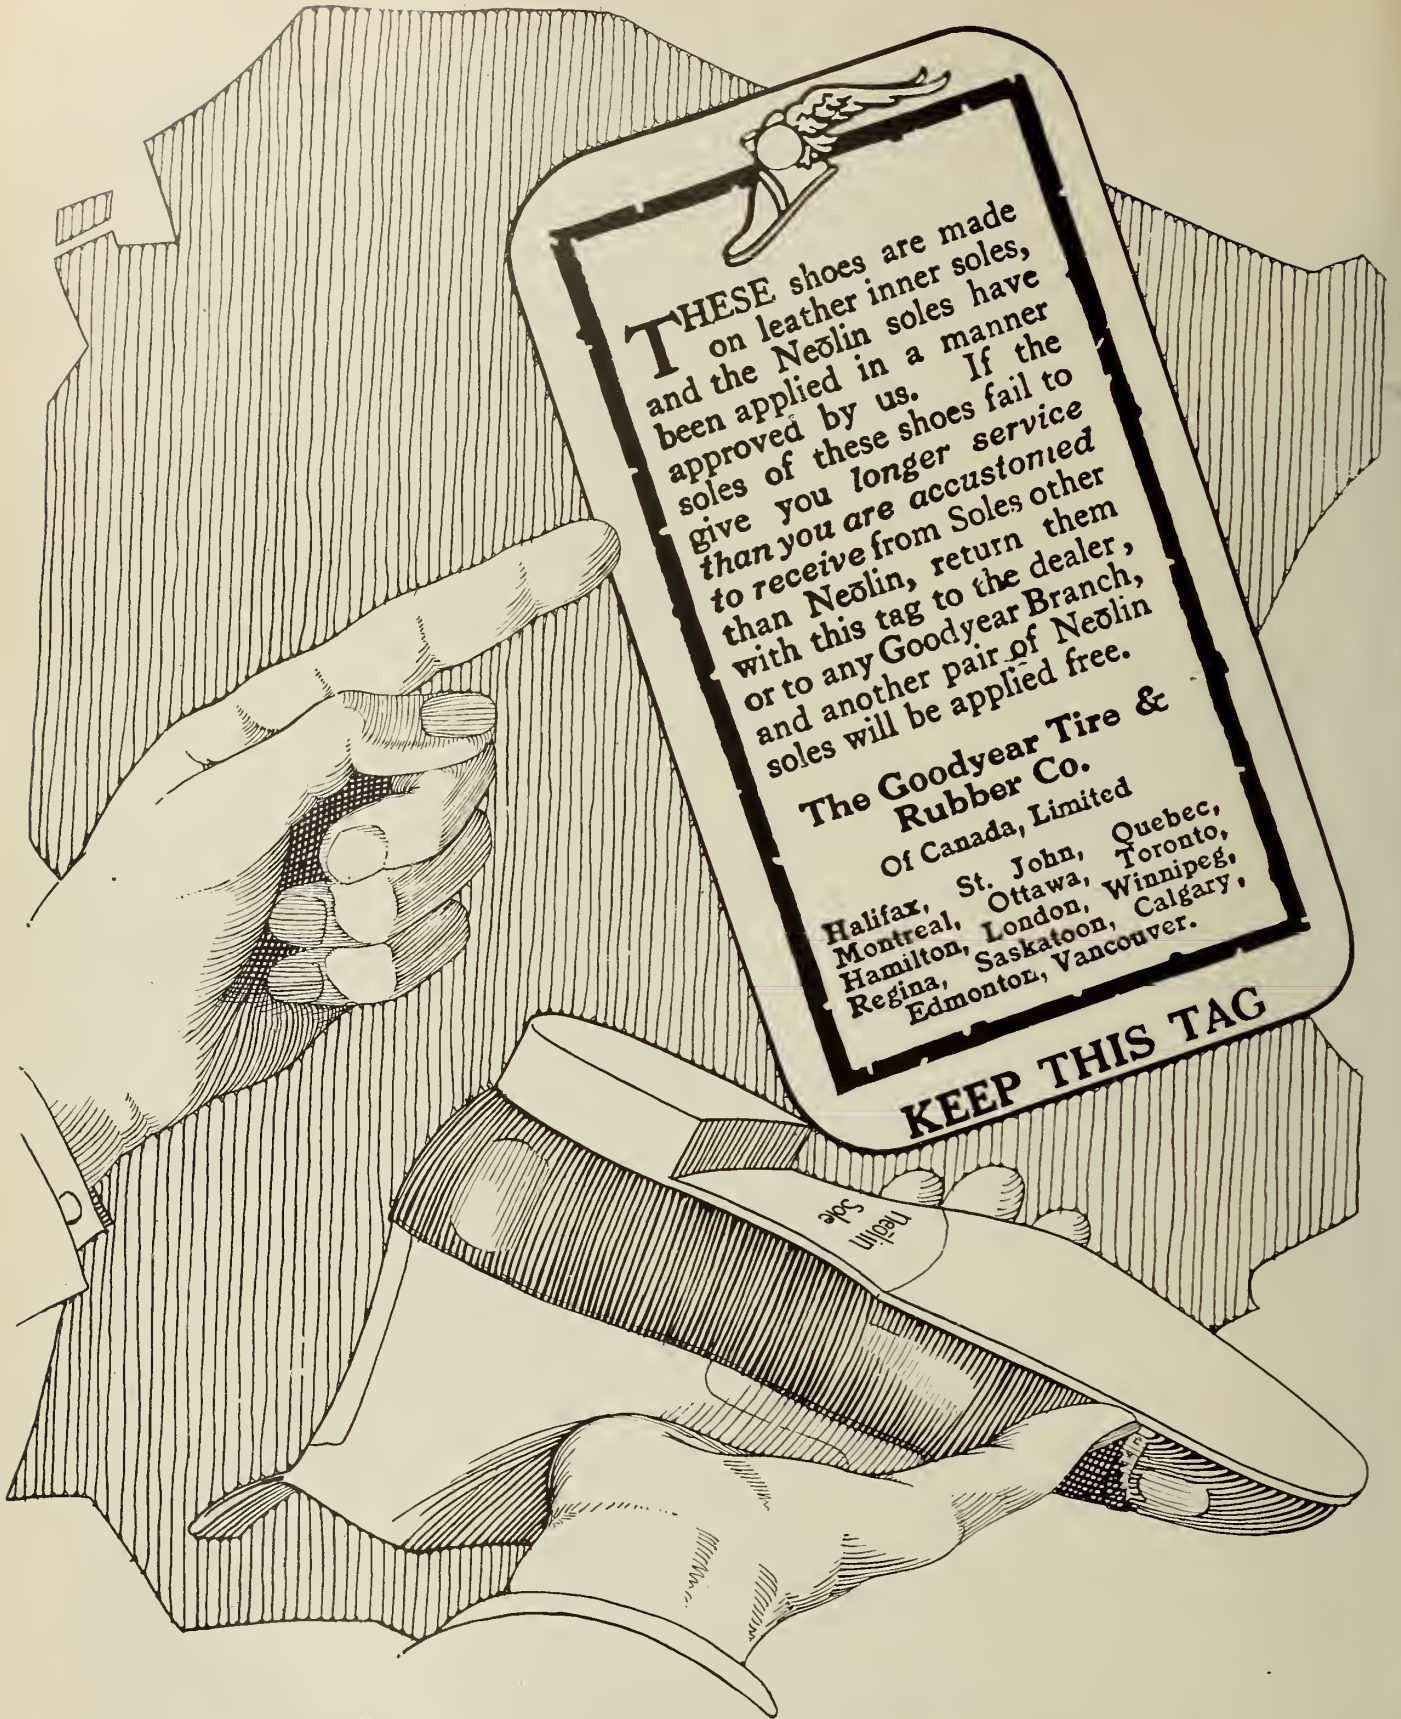 THESE shoes are made
on leather inner soles,
and the Neōlin soles have
been applied in a manner
approved by us. If the
soles of these shoes fail to
give you longer service
than you are accustomed
to receive from Soles other
than Neōlin, return them
with this tag to the dealer,
or to any Goodyear Branch,
and another pair of Neōlin
soles will be applied free.
The Goodyear Tire &
Rubber Co.
Of Canada, Limited
Halifax, St. John, Quebec,
Montreal, Ottawa, Toronto,
Hamilton, London, Winnipeg,
Regina, Saskatoon, Calgary,
Edmonton, Vancouver.
KEEP THIS TAG
neōlin
Sole